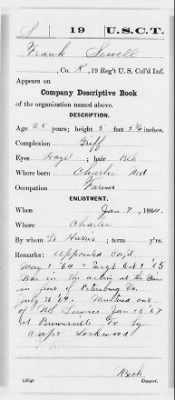 S | 19 | U.S.C.T.
Frank Sewell
Co. K, 19 Reg't U. S. Col'd Inf.
Appears on
Company Descriptive Book
of the organization named above.
DESCRIPTION.
Age 28 years; height 5 feet inches.
Complexion Griff
Eyes Hazel; hair Blk
Where born Charles Md
Occupation Farmer
ENLISTMENT.
When Jan 7, 1864.
Where Charles
By whom Harris; term yrs.
Remarks: Appointed Corp'l
May 1 '64 Serg't Oct 1 '65
Was in the action at the
in front of Petersburg Va.
July 30 '64. Mustered out
of Service Jan 15 '67
at Brownsville Tx by
Capt Lockwood
Copyist.